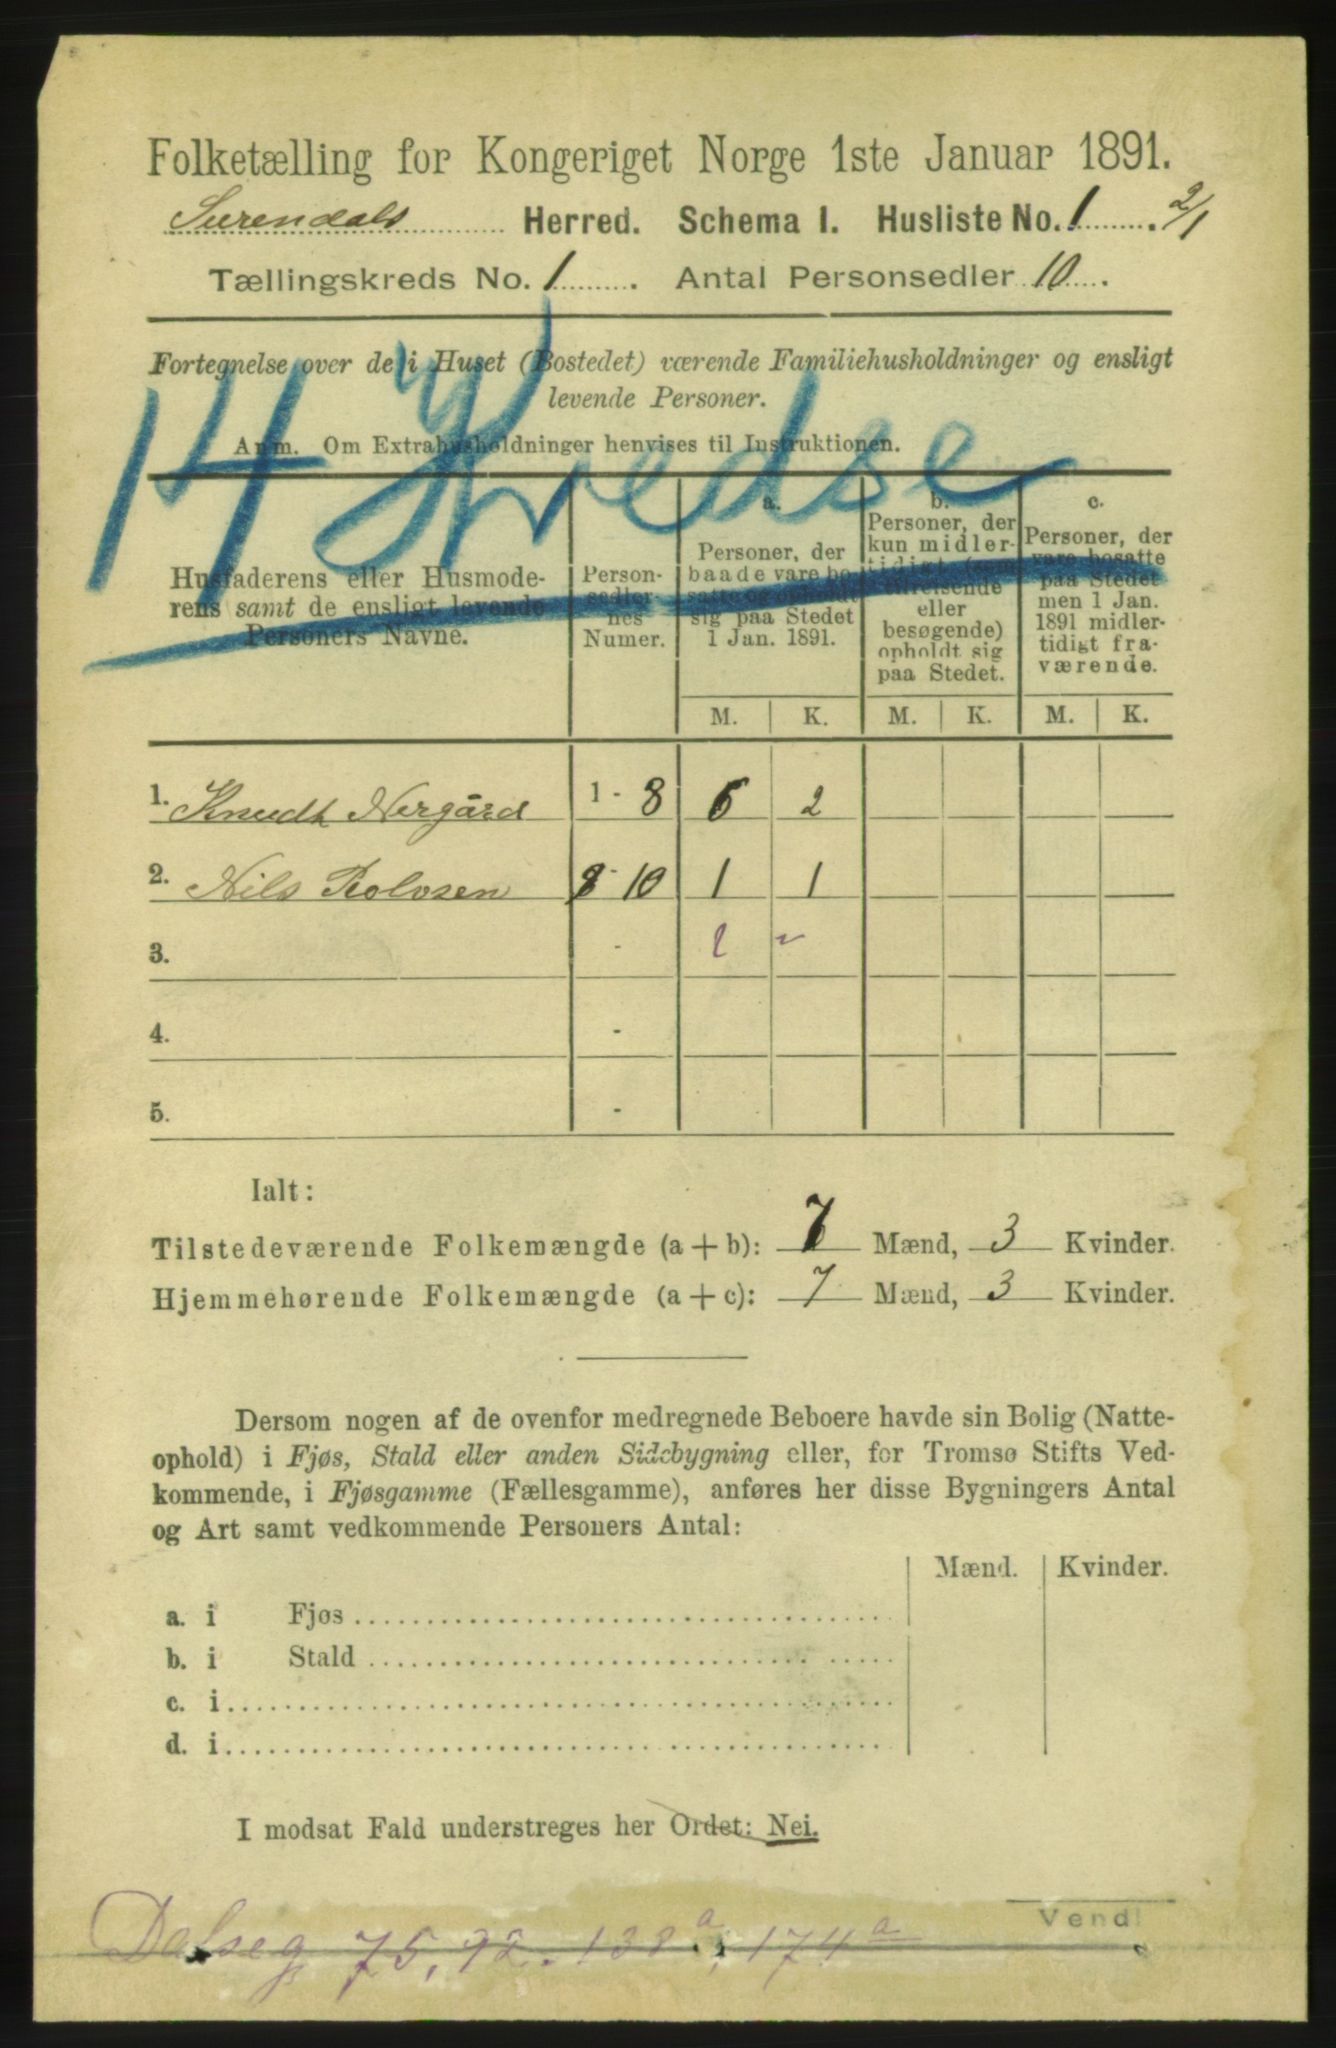 Folketælling for Kongeriget Norge 1ste Januar 1891.
Surendals Herred. Schema I. Husliste No. 1. 2/1
Tællingskreds No. 1. Antal Personsedler 10.
Fortegnelse over de i Huset (Bostedet) værende Familiehusholdninger og ensligt
levende Personer.
Anm. Om Extrahusholdninger henvises til Instruktionen.
14 Kredse
Husfaderens eller Husmode-
rens samt de ensligt levende
Personers Navne.
Person-
sedler-
nes
Numer.
a.
Personer, der
baade vare bo-
satte og opholdt
sig paa Stedet
1 Jan. 1891.
b.
Personer, der
kun midler-
tidigt (som
tilreisende
eller
besøgende)
opholdt sig
paa Stedet.
c.
Personer, der
vare bosatte
paa Stedet
men 1 Jan.
1891 midler-
tidigt fra-
værende.
M. K. M. K. M. K.
1. Knudt Nergård 1 - 8 6 2
2. Nils Rolvsen 8 - 10 1 1
3. - 2
4. -
5. -
Ialt:
Tilstedeværende Folkemængde (a + b): 7 Mænd, 3 Kvinder.
Hjemmehørende Folkemængde (a + c): 7 Mænd, 3 Kvinder.
Dersom nogen af de ovenfor medregnede Beboere havde sin Bolig (Natte-
ophold) i Fjøs, Stald eller anden Sidebygning eller, for Tromsø Stifts Ved-
kommende, i Fjøsgamme (Fællesgamme), anføres her disse Bygningers Antal
og Art samt vedkommende Personers Antal:
Mænd. Kvinder.
a. i Fjøs
b. i Stald
c. i
d. i
I modsat Fald understreges her Ordet: Nei.
Vend!
Dalseg 75, 92. 138a, 174a